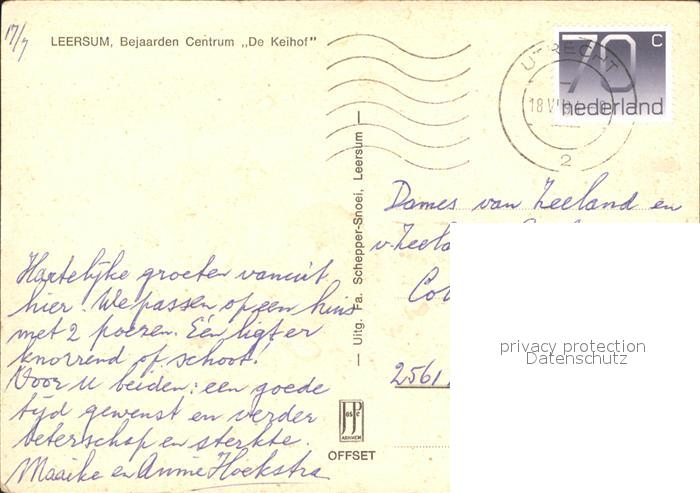 17/7
LEERSUM, Bejaarden Centrum „De Keihof"
70 c
nederland
UTRECHT
18 VII
2
Uitg. Fa. Schepper-Snoei, Leersum
Dames van Zeeland en
2561
privacy protection
Datenschutz
Hartelijke groeten vanuit
hier! We passen op een huis
met 2 poezen. Eén ligt er
knorrend op schoot!
Voor U beiden: een goede
tijd gewenst en verder
beterschap en sterkte.
Maaike en Annie Hoekstra
JosPé
ARNHEM
OFFSET